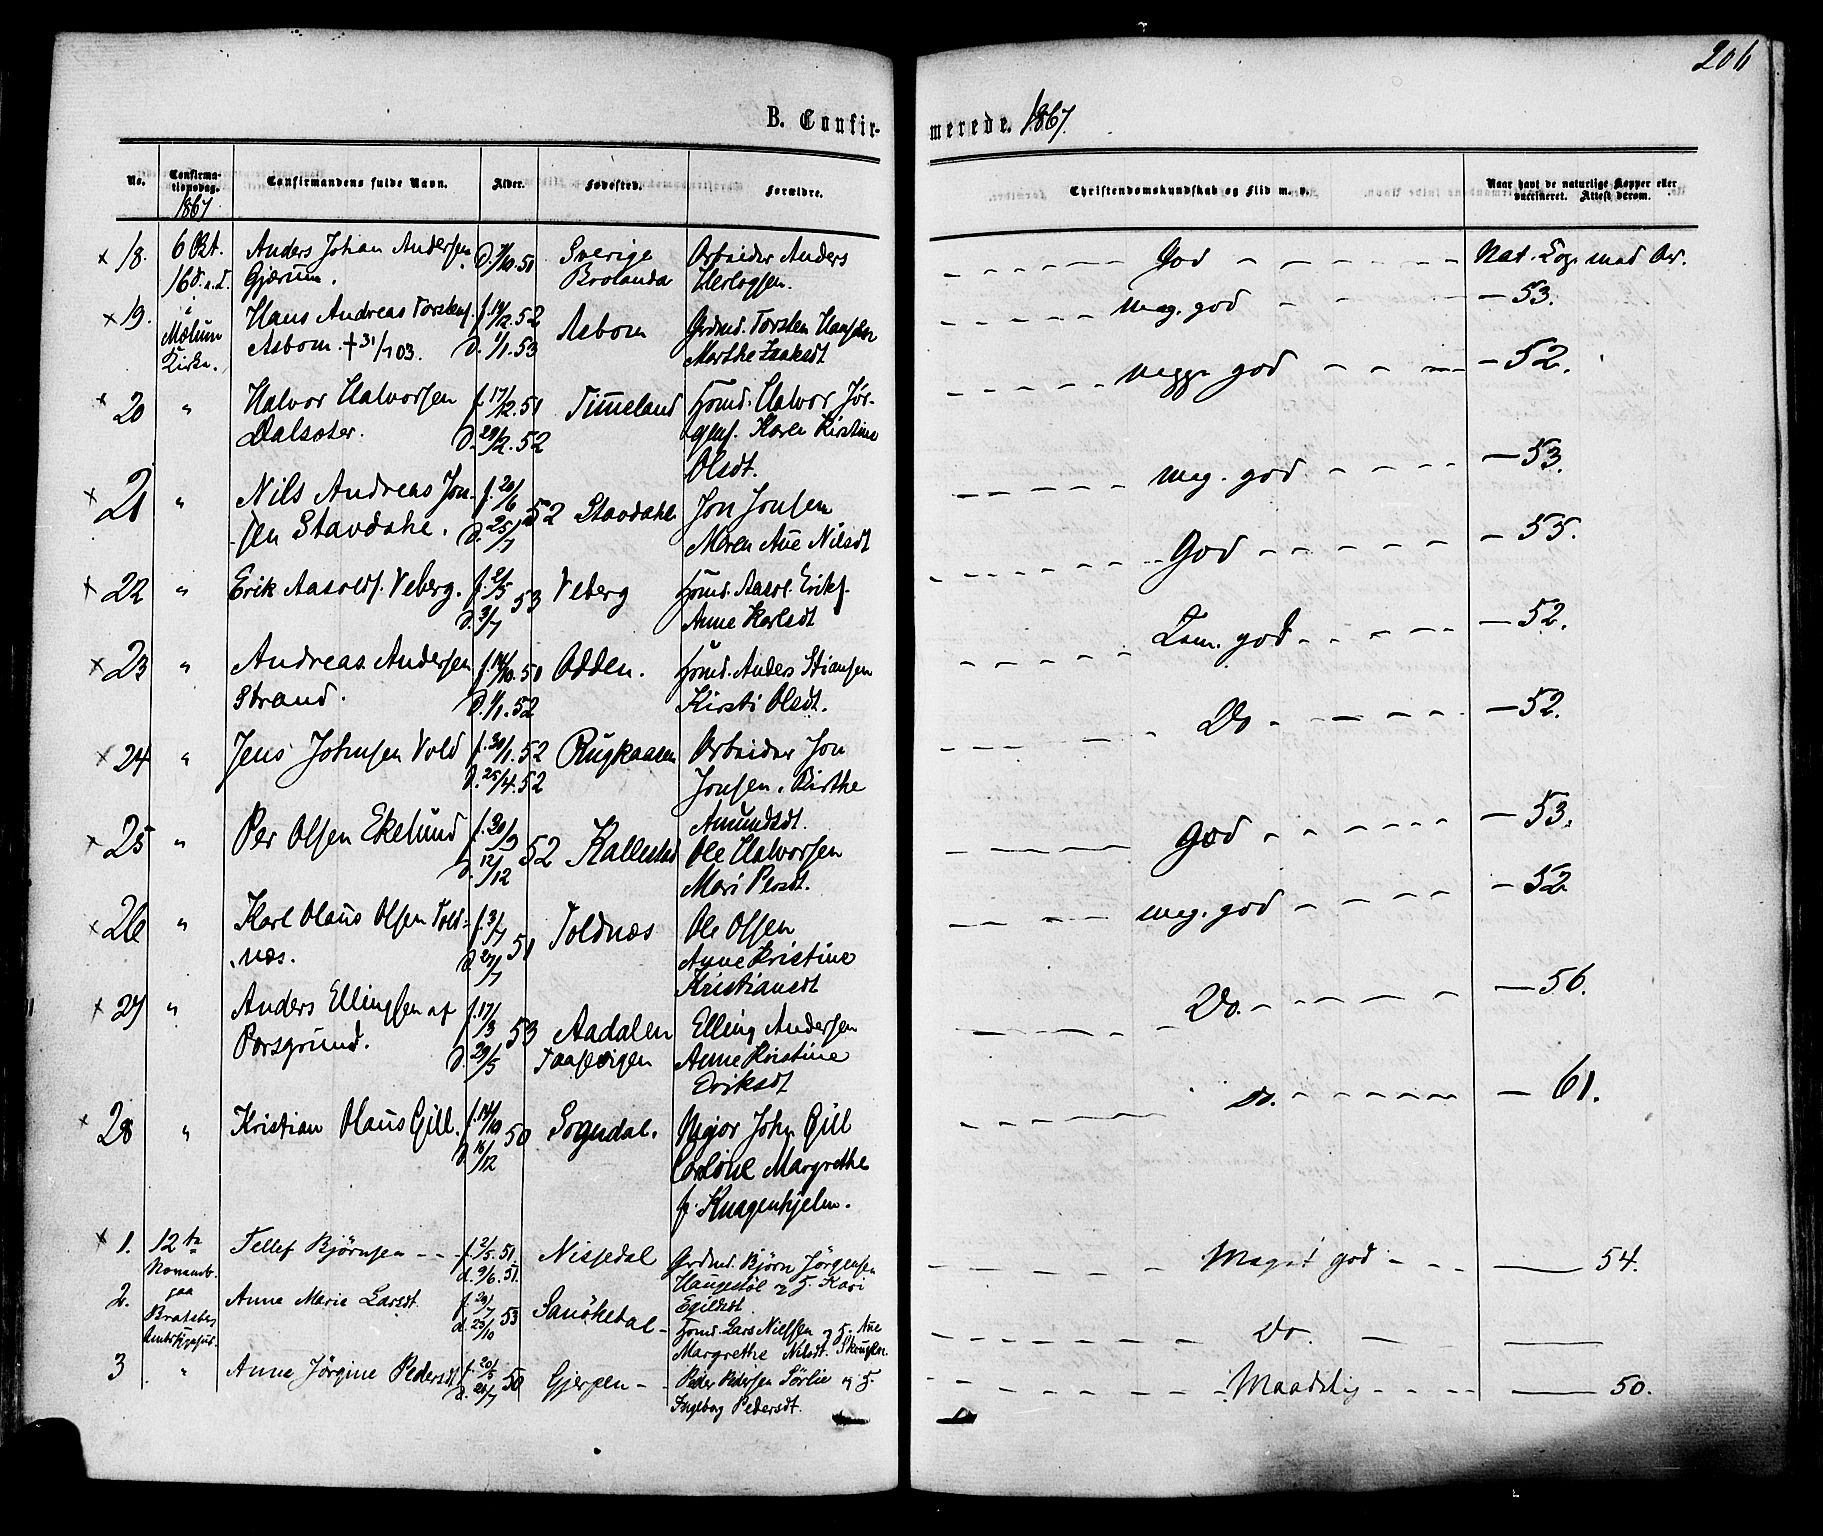 206
B. Confirmerede. 1867.
No. Confirmationsdag. Confirmandens fulde Navn. Alder. Fødested. Forældre. Christendomskundskab og Flid m. v. Naar havt de naturlige Kopper eller vaccineret. Attest derom.
1867
18. 6 Okt. Anders Johan Andersen d. 7/10. 51 Sverige Arbeider Anders God Nat. Kop.
16 S. e. T. Gjærum. Brolanda
19. i Hans Andreas Torstens. f. 52 Asbom Grdmd. Torsten Hansen meg. god — 53.
Mælum Asbom † 31/7 03. d. 1/1. 53 Marthe Isaksdt
Kirke.
20 " Halvor Halvorsen f. 17/12. 51 Timeland Hsmd. Halvor Jør- megge god — 52.
Dalsæter. d. 29/2. 52 gens. Karen Kirstine
Olsdt.
21 " Nils Andreas Jon- f. 20/6 52 Stavdahl Jon Jonsen meg. god — 53.
sen Stavdahl. d. 25/7 Maren Ane Nilsdt
22 " Erik Aasolds. Veberg. f. 2/5 53 Veberg Hsmd. Aasol. Eriks. God — 55.
d. 3/7 Anne Karlsdt
23 " Andreas Andersen f. 14/10. 50 Odden. Hsmd. Anders Stiansen Tem. god — 52.
Strand. d. 1/1. 52 Kirsti Olsdt.
24 " Jens Johnsen Vold f. 30/1. 52 Rugkaasen Arbeider Jon Do — 52.
d. 25/4. 52 Jonsen. Birthe
Amundsdt.
25 " Per Olsen Ekelund f. 30/9 52 Kallestad Ole Halvorsen god — 53.
d. 12/12 Mari Persdt.
26 " Karl Olaus Olsen Told- f. 3/7 51 Toldnæs Ole Olsen meg. god — 52
næs. d. 27/7 Anne Kristine
Kristiansdt
27 " Anders Ellingsen af f. 17/3 53 Aadalen Elling Andersen Do. — 56.
Porsgrund. d. 29/5 Anne Kristine
Eriksdt
28 " Kristian Olaus Gill. f. 14/10 50 Sogndal. Major John Gill Do. — 61.
d. 16/12 Margrethe
f. Knagenhjelm.
1. 12te Tellef Bjørnsen f. 2/5. 51. Nissedal Grdmd. Bjørn Jørgensen Meget god — 54.
Novemb. d. 9/6. 51. Haugestøl og H. Kari
2. paa Anne Marie Larsdt. f. 29/7 53 Sanøkedal Egilsdt. Do. —
Bratsberg d. 23/10 Hsmd. Lars Nielsen og H. Ane
Margrethe Nilsdt.
3 " Anne Jørgine Pedersdt f. 20/5 50 Gjerpen Peder Pedersen Sørlie og H. Maadelig — 50.
d. 21/7 Ingeborg Pedersdt.